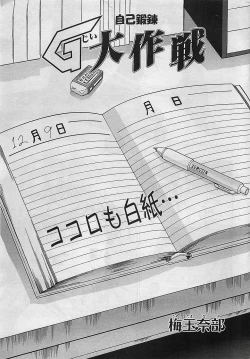 自己鍛錬
G大作戦
じい
12月9日
月 日
ココロも白紙…
梅玉奈部